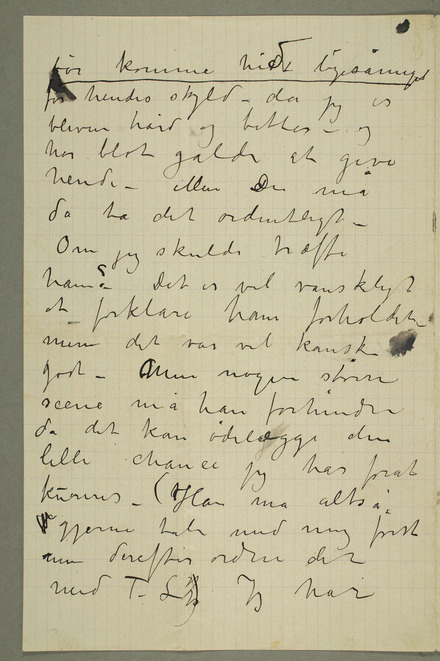 bør komme hid ligesåmeget
for hendes skyld – da jeg er
bleven hård og bitter – og
har blot galde at give
hende – men De må
da ta det ordentligt –
Om jeg skulde træffe
ham? Det er vel vanskeligt
at forklare ham forholdet
men det var vel kanske
godt – Men nogen større
scene må han forhindre
da det kan ødelægge den
lille chance jeg har for at
kureres – (Han må altså
gjerne tale med mig først
men derefter ordne det
med T. L) Jeg har